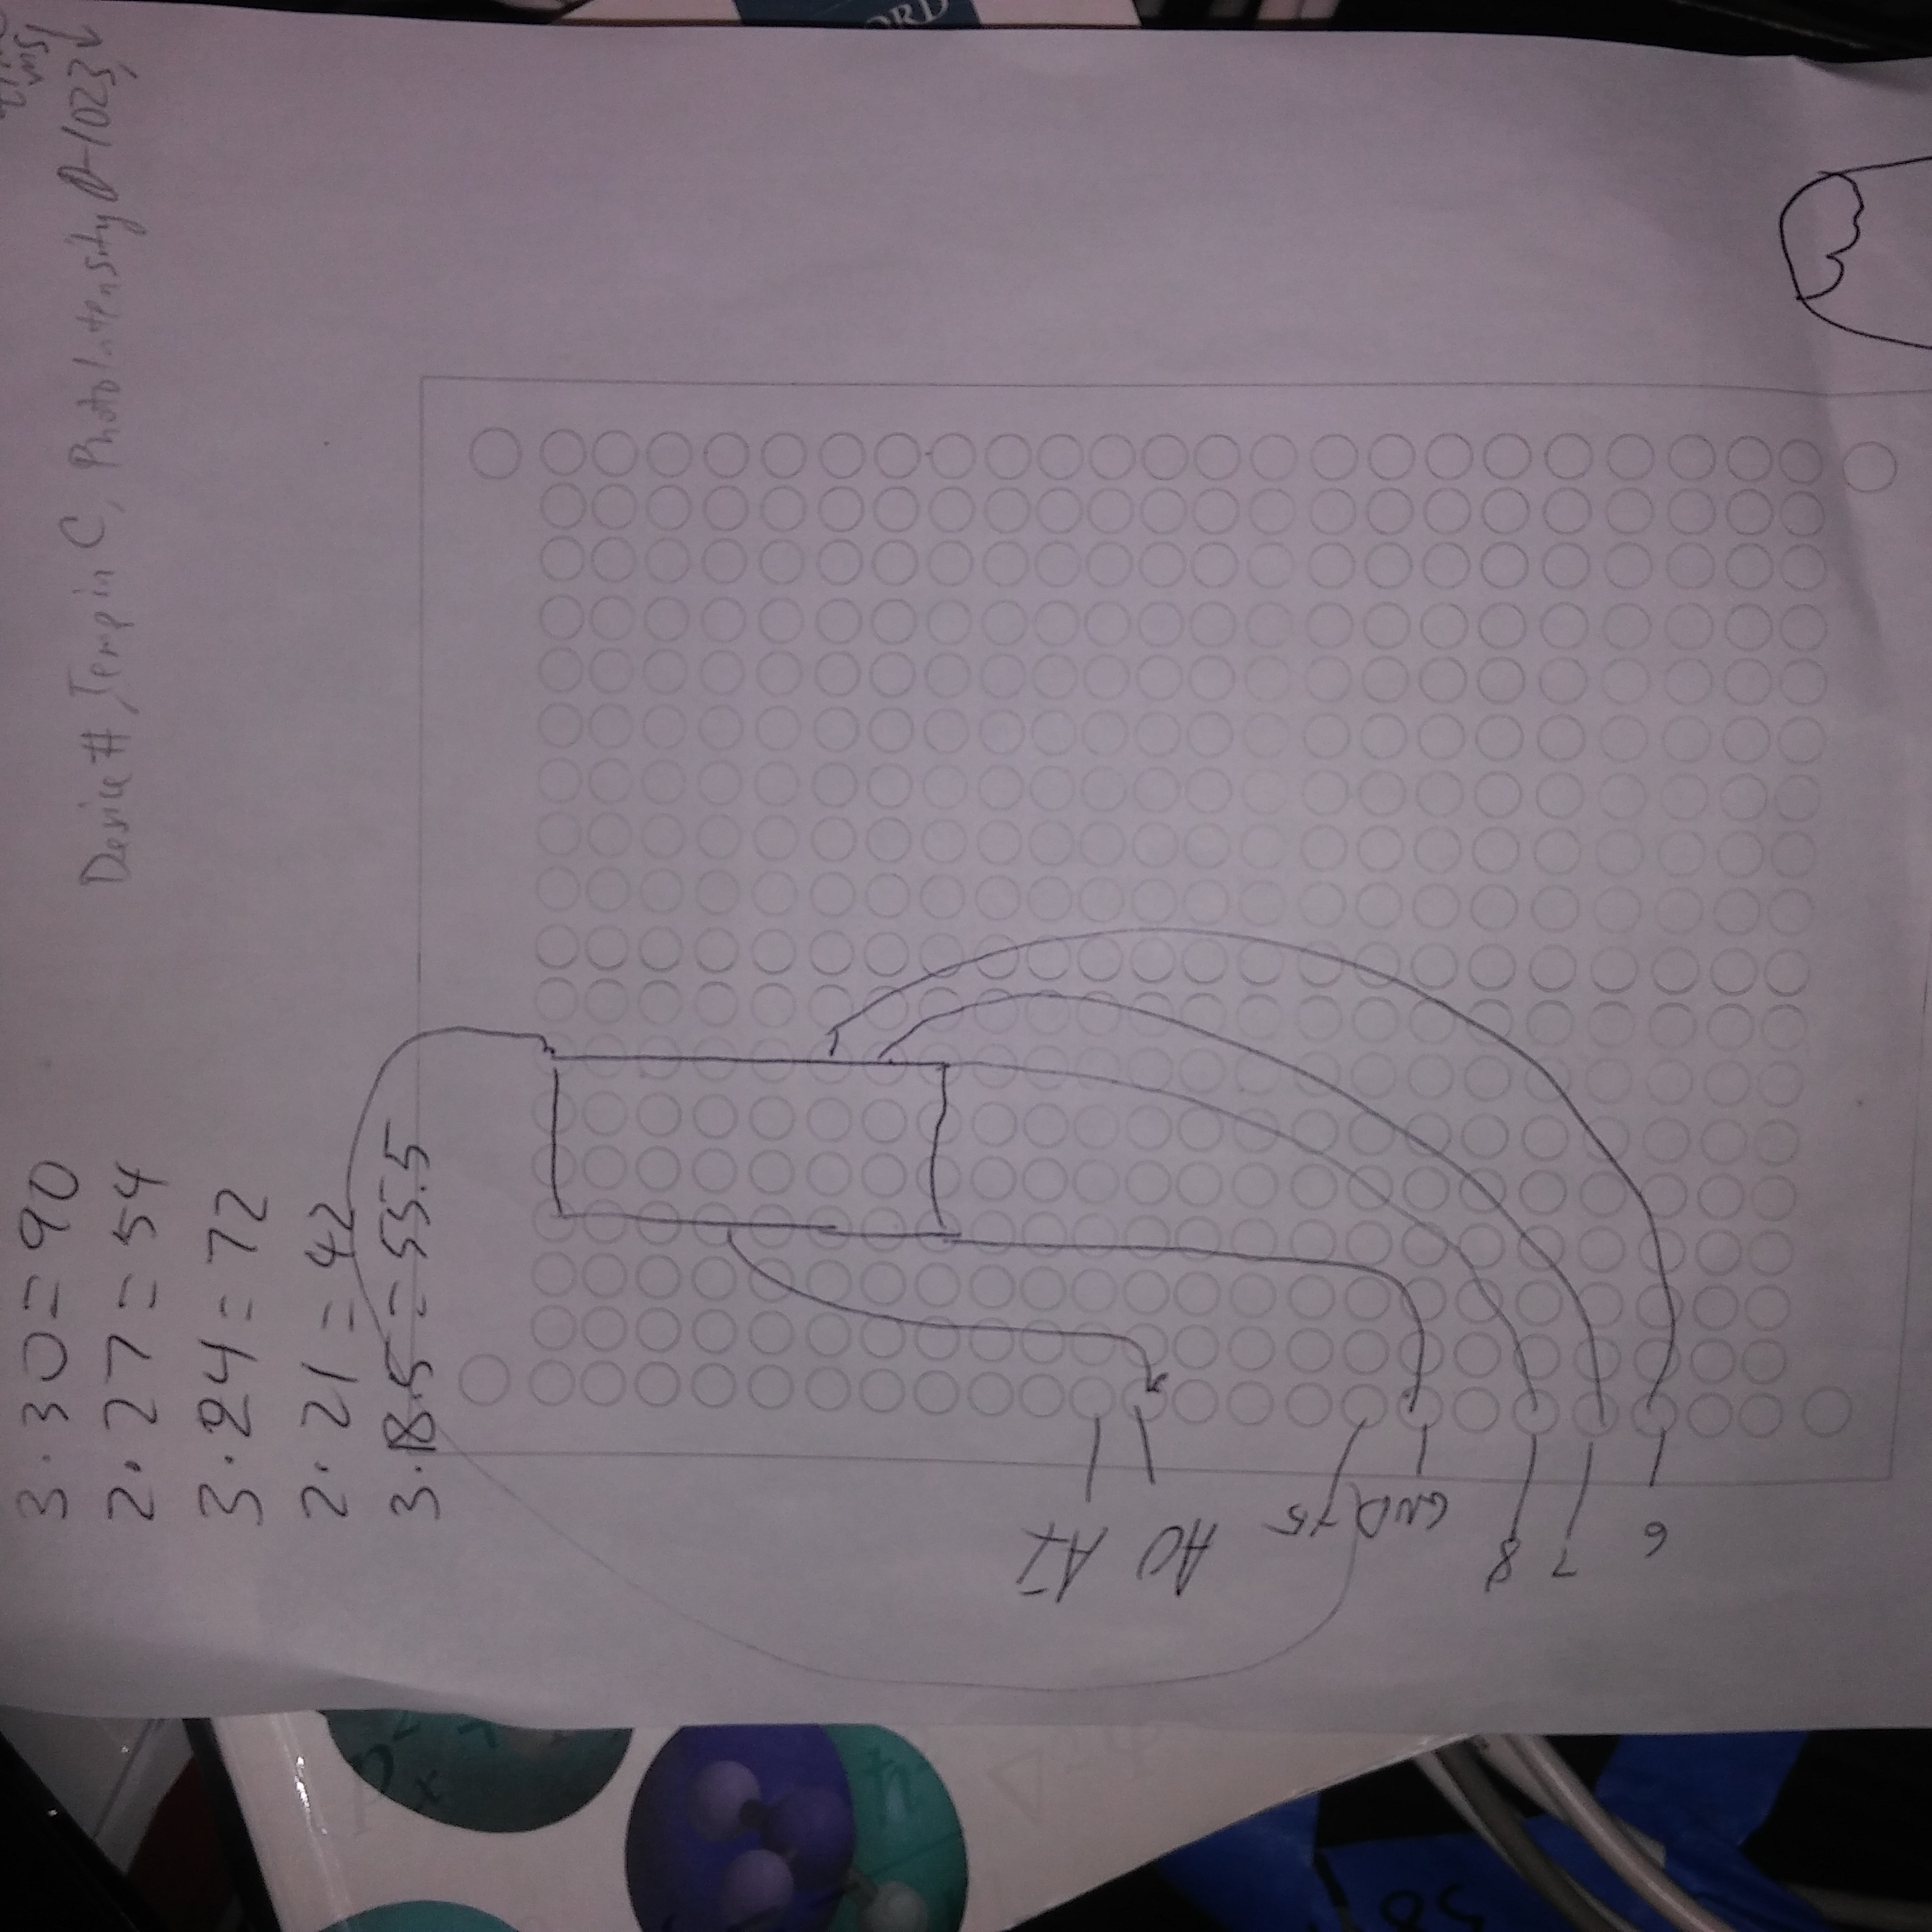 3·30=90
2·27=54
3·24=72
2·21=42
3·18.5=55.5
ms
Device #, Temp in C, PhotoIntensity 0-1023,
A1
A0
+5
GND
8
7
6
58